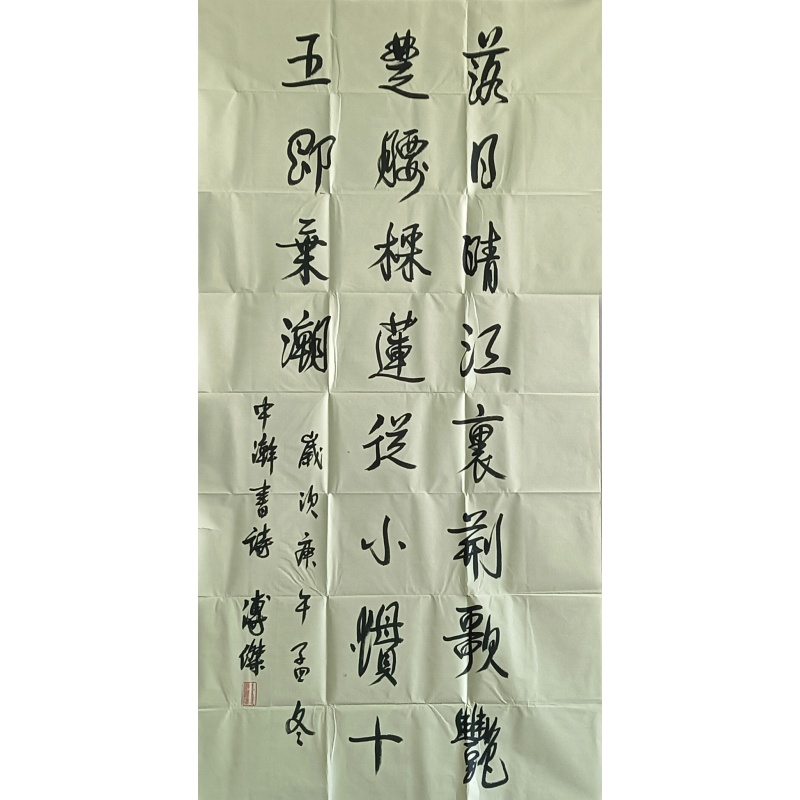 落日晴江裏荆歌艷
楚腰採蓮從小慣十
五即乘潮
歲次庚午孟冬
中澣書詩 溥傑